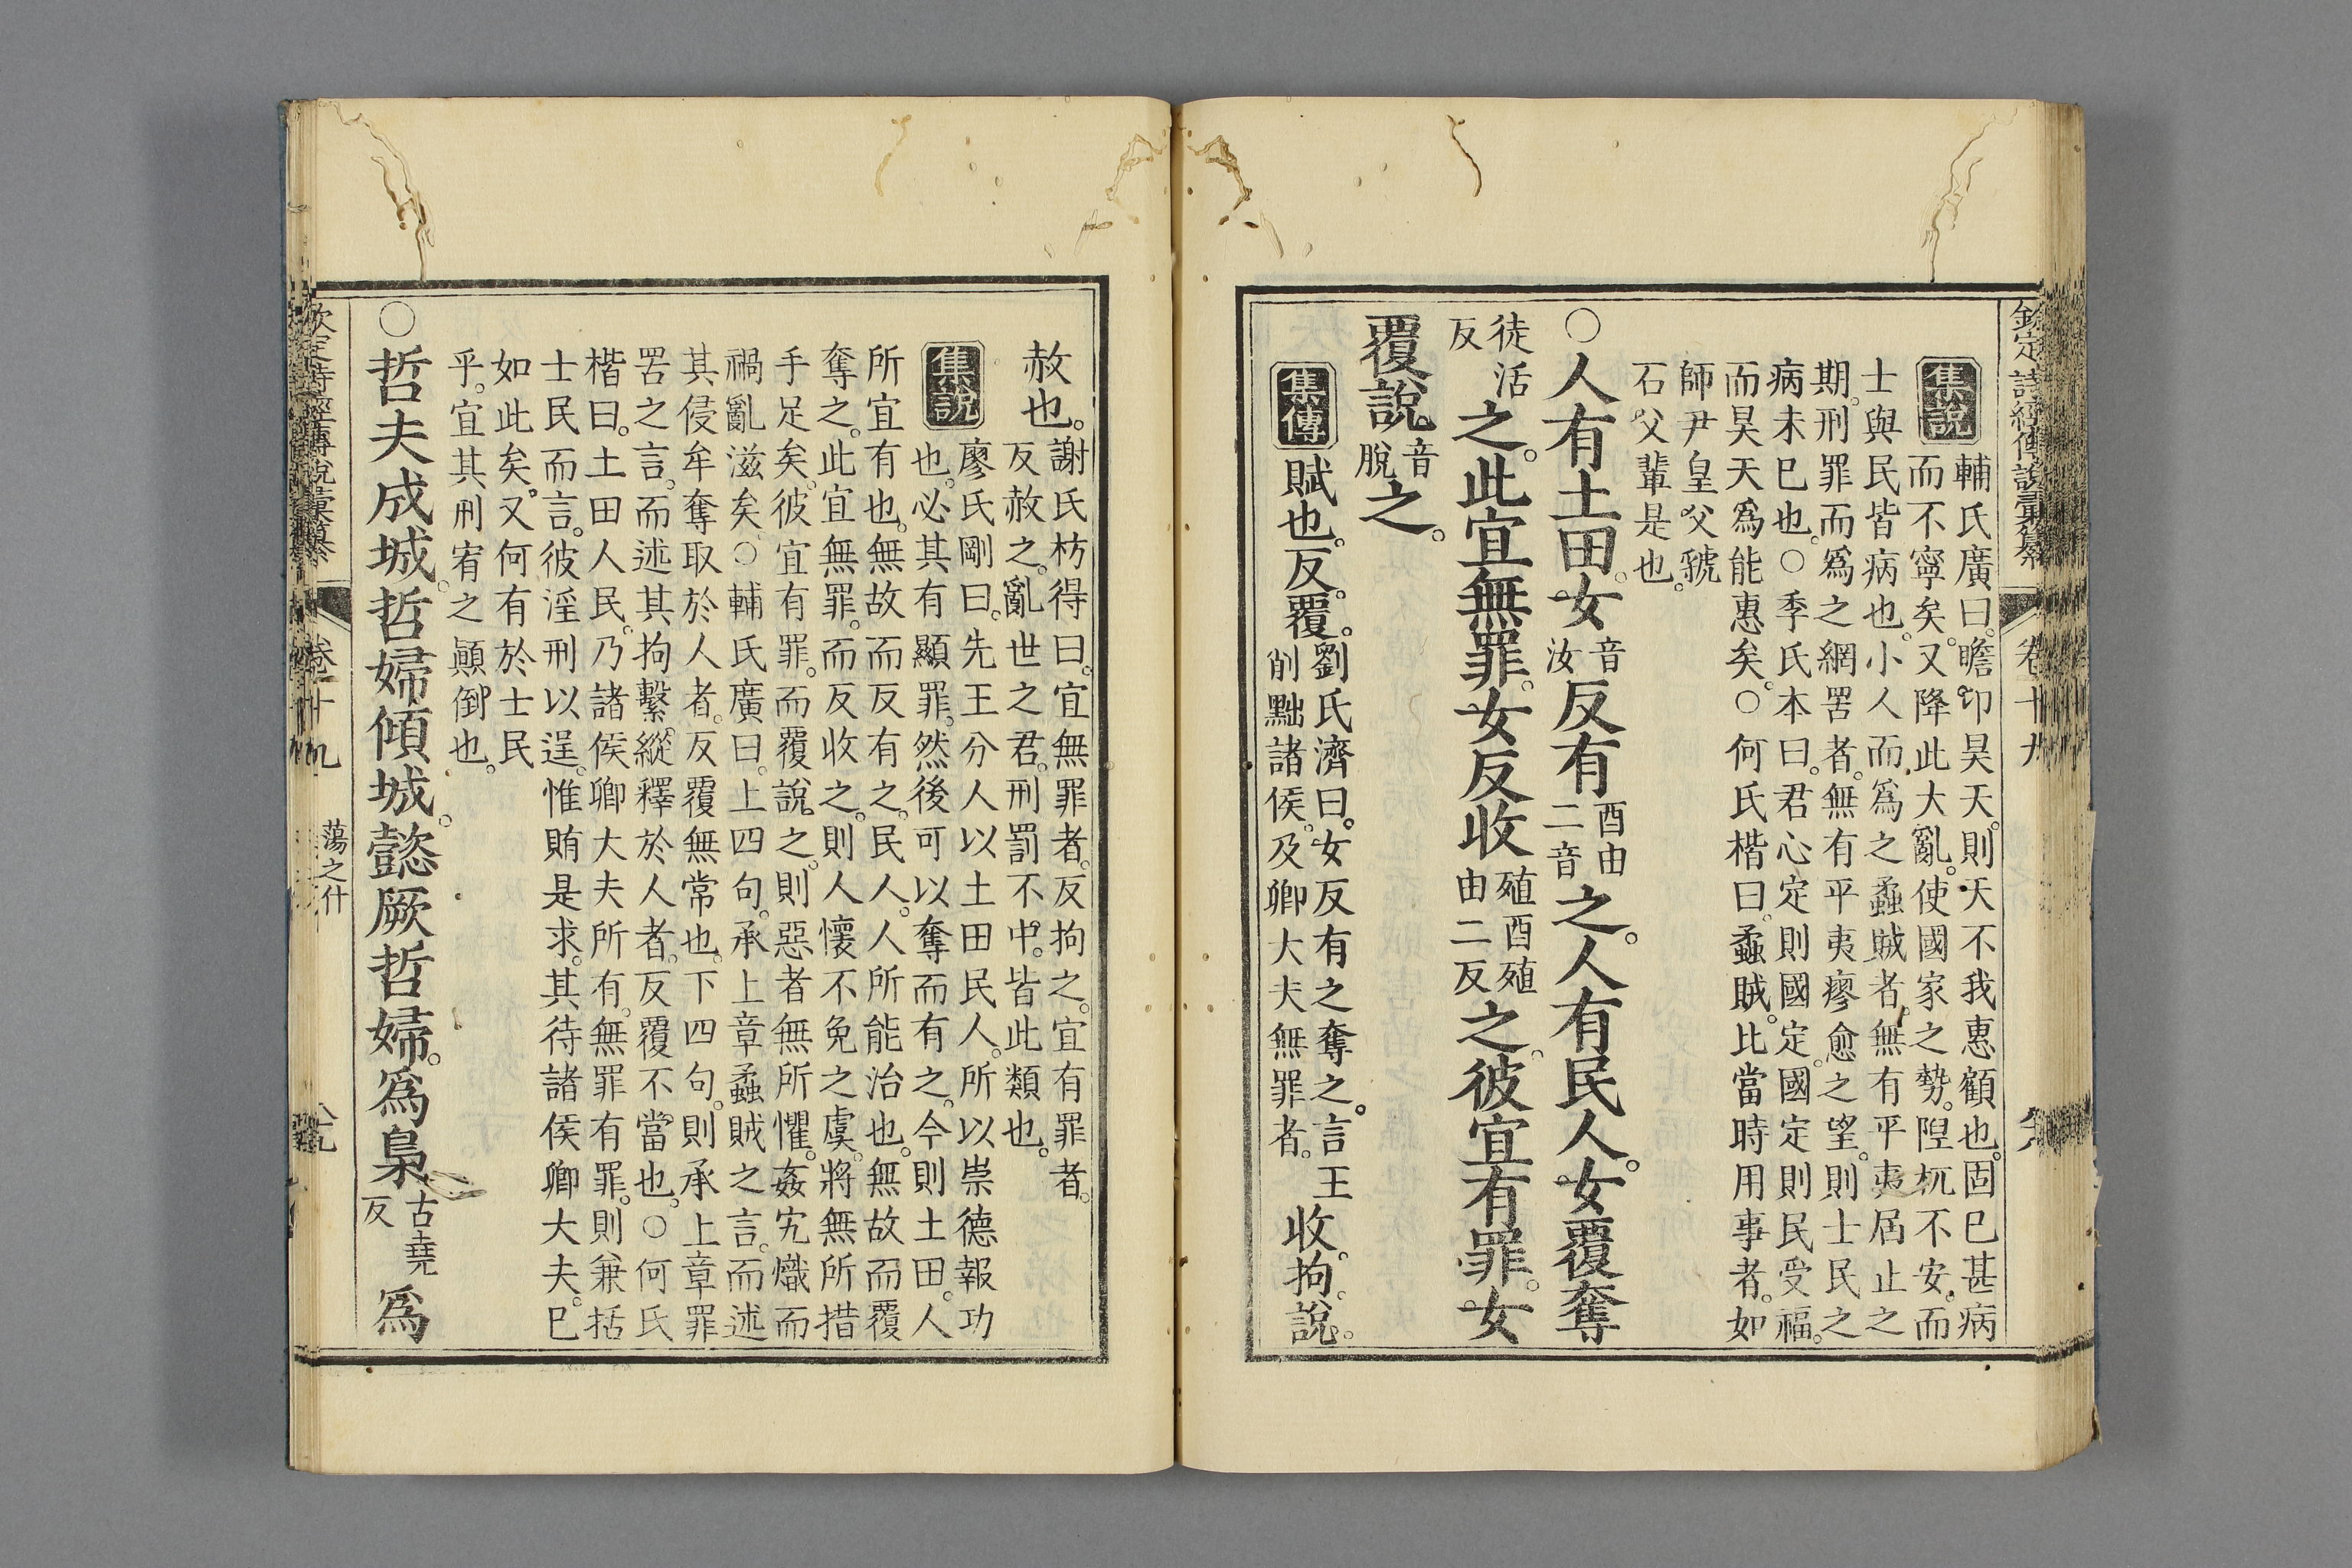 欽定詩經傳說彙纂 卷十九
集說 輔氏廣曰。瞻卬昊天。則天不我惠顧也。固已甚病
而不寧矣。又降此大亂。使國家之勢。隉杌不安。而
士與民皆病也。小人而為之蟊賊者。無有平夷屆止之
期。刑罪而爲之網罟者。無有平夷瘳愈之望。則士民之
病未已也。○季氏本曰。君心定則國定。國定則民受福。
而昊天爲能惠矣。○何氏楷曰。蟊賊。比當時用事者。如
師尹皇父虢
石父輩是也。
○人有土田。女音汝反有酉由二音之。人有民人。女覆奪
徒活反之。此宜無罪。女反收殖酉殖由二反之。彼宜有罪。女
覆說音脫之。
集傳 賦也。反。覆。劉氏濟曰。女反有之奪之。言王削黜諸侯。及卿大夫無罪者。收。拘。說。
赦也。謝氏枋得曰。宜無罪者。反拘之。宜有罪者。
反赦之。亂世之君。刑罰不中。皆此類也。
集說 廖氏剛曰。先王分人以土田民人。所以崇德報功
也。必其有顯罪。然後可以奪而有之。今則土田。人
所宜有也。無故而反有之。民人。人所能治也。無故而覆
奪之。此宜無罪。而反收之。則人懷不免之虞。將無所措
手足矣。彼宜有罪。而覆說之。則惡者無所懼。姦宄熾而
禍亂滋矣。○輔氏廣曰。上四句。承上章蟊賊之言。而述
其侵牟奪取於人者。反覆無常也。下四句。則承上章罪
罟之言。而述其拘繫縱釋於人者。反覆不當也。○何氏
楷曰。土田人民。乃諸侯卿大夫所有。無罪有罪。則兼括
士民而言。彼淫刑以逞。惟賄是求。其待諸侯卿大夫。已
如此矣。又何有於士民
乎。宜其刑宥之顚倒也。
○哲夫成城。哲婦傾城。懿厥哲婦。爲梟古堯反爲
欽定詩經傳說彙纂 卷十九 蕩之什